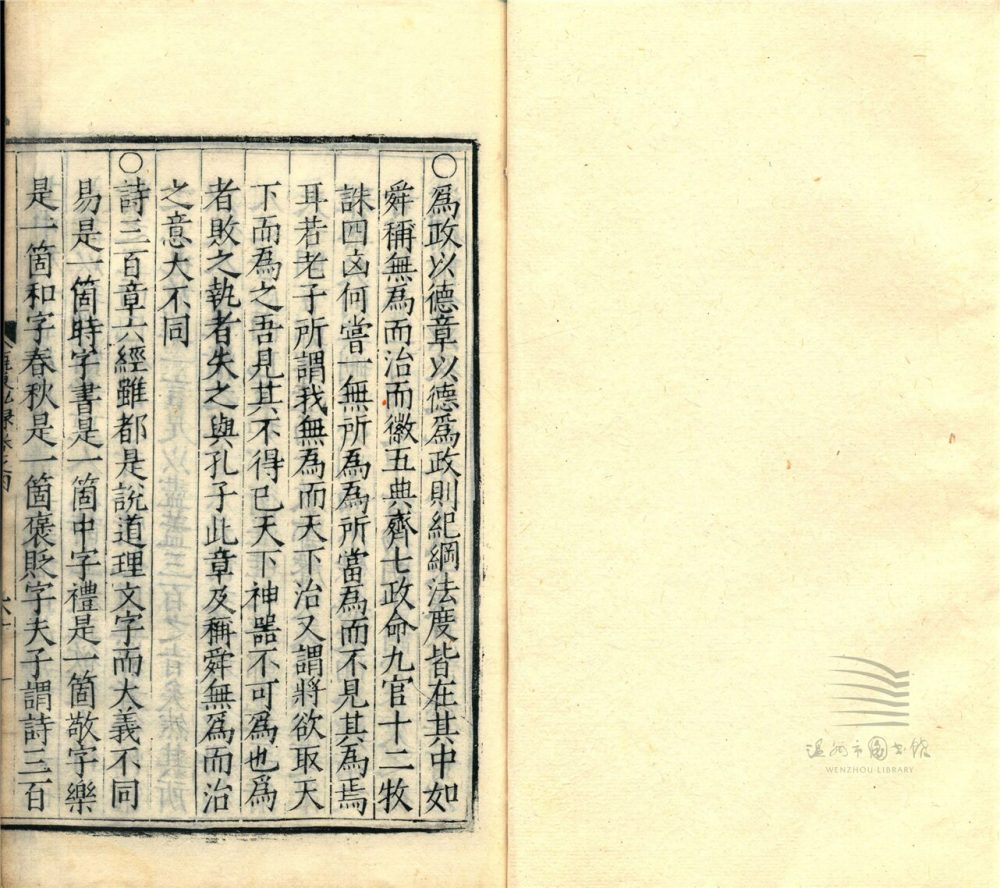 ○爲政以德章以德爲政則紀綱法度皆在其中如
舜稱無爲而治而徽五典齊七政命九官十二牧
誅四凶何嘗一無所爲爲所當爲而不見其爲焉
耳若老子所謂我無爲而天下治又謂將欲取天
下而爲之吾見其不得已天下神器不可爲也爲
者敗之執者失之與孔子此章及稱舜無爲而治
之意大不同
○詩三百章六經雖都是說道理文字而大義不同
易是一箇時字書是一箇中字禮是一箇敬字樂
是一箇和字春秋是一箇褒貶字夫子謂詩三百
温州市圖書館
WENZHOU LIBRARY